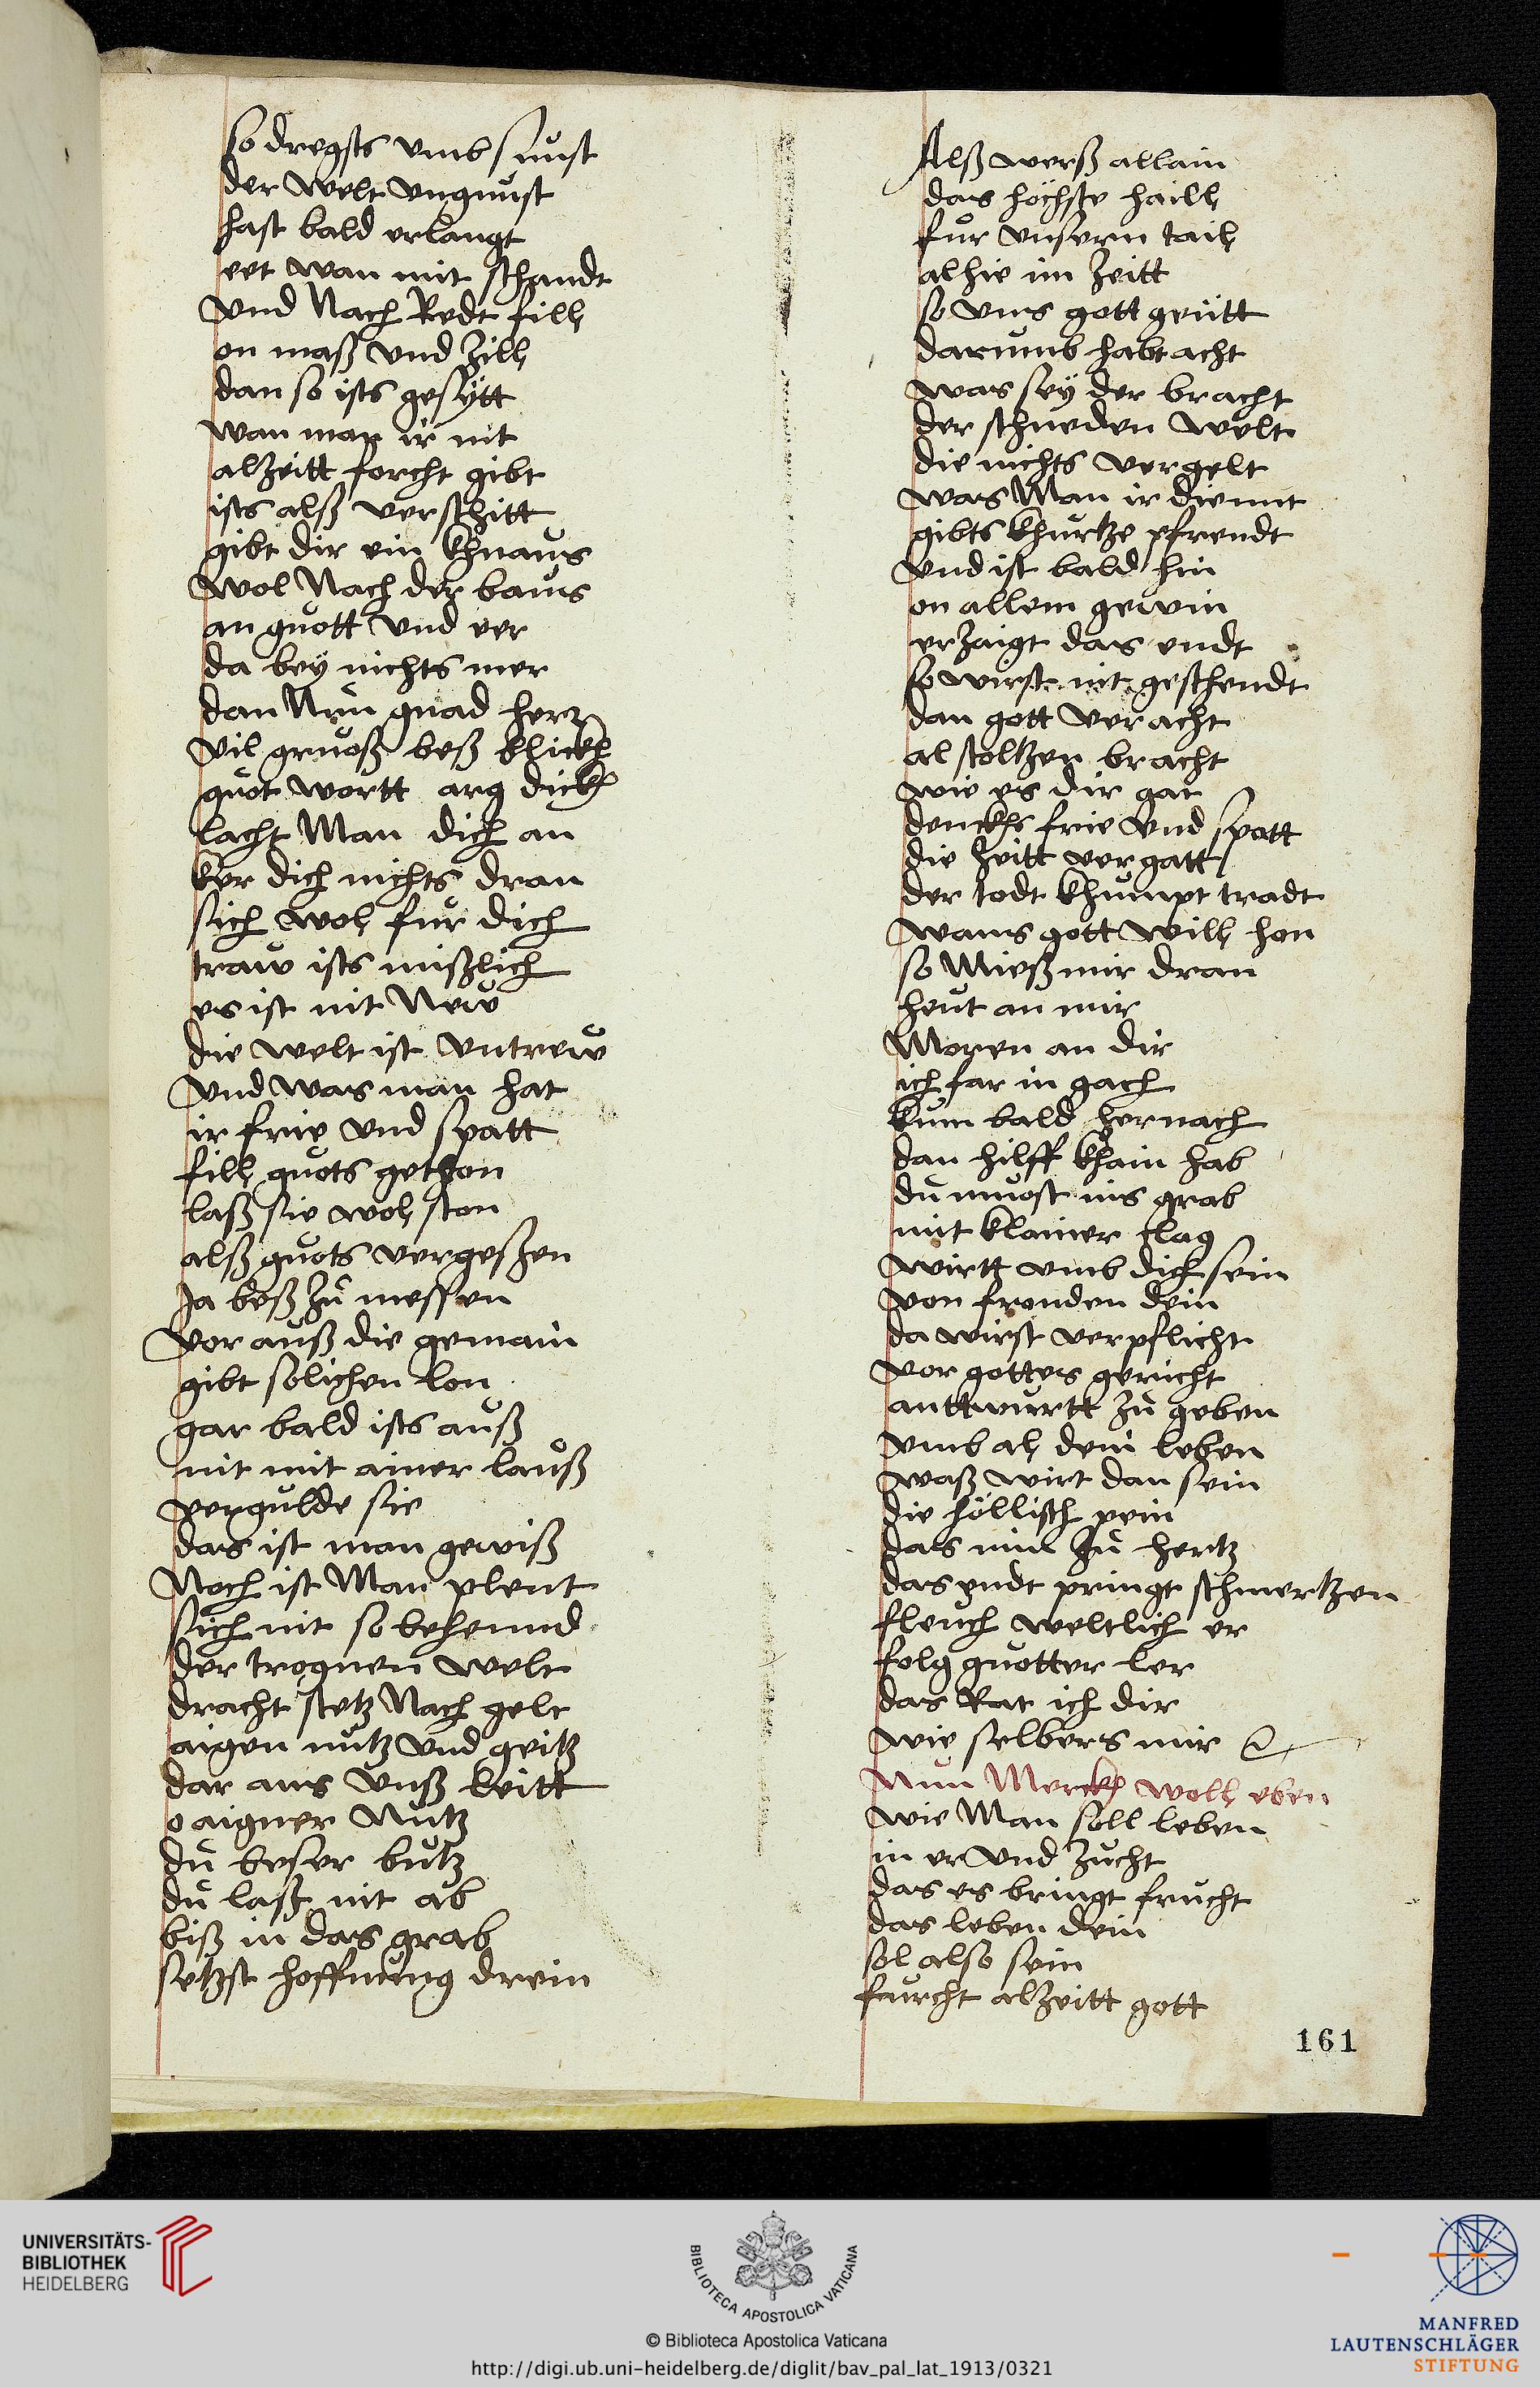 so dregsts vmb sunst
der welt vngunst
hast bald erlangt
eet wan mit schandt
vnd Nach Redt fill
on maß vnd Zill
dan so ists gesytt
wan man ir nit
alzeitt forcht gibt
ists alß verschitt
gibt dir ein Khnaus
wol Nach der baus
an guott vnd eer
da bey nichts mer
dan Nun gnad herr
vil gruoß beß blickh
guot wortt arg dickh
lacht Man dich an
ker dich nichts dran
sich wol fur dich
traw ists mißlich
es ist nit New
die welt ist vntrew
vnd was man hat
ir frie vnd spatt
fill guots gethon
laß sie wol ston
alß guots vergeßen
Ja beß zu messen
vor auß die gemain
gibt solichen lon
gar bald ists auß
nit mit ainer lauß
vergulde sie
das ist man gewiß
Noch ist Man plent
sich nit so behennd
der trognen welt
dracht stetz Nach gelt
aigen nutz vnd geitz
dar aus vnß leitt
o aigner Nutz
du beser butz
du last nit ab
biß in das grab
setzst hoffnung drein
Alß werß allain
das höchste haill
fur vnsern tail
alhie im Zeitt
so vns gott geütt
darumb habt acht
was sey der bracht
der schneden welt
die nichts vergelt
was Man ir diennt
gibts khurtze pfrendt
vnd ist bald hin
on allem gewin
erzaigt das endt
so wirst nit geschendt
dan gott veracht
al stoltzen bracht
wie es dir gat
denckhs frie vnd spatt
die Zeitt vergatt
der todt khumpt tradt
wans gott will hon
so Mieß mir dran
heut an mir
Moren an dir
ich far in gach
kum bald hernach
dan hilff khain hab
du muost ins grab
mit klainer clag
wirtt vmb dich sein
von frenden dein
da wirst verpflicht
vor gottes gericht
anttwurtt zu geben
vmb al dein leben
waß wirt dan sein
die höllisch pein
das nim zu hertz
das endt pringt schmertzen
fleuch weltlich er
folg guotter ler
das Rat ich dir
wie selbers mir
Nun Merckh woll eben
wie Man soll leben
in er vnd Zucht
das es bringt frucht
das leben dein
sol also sein
furcht alzeitt gott
161
UNIVERSITÄTS-
BIBLIOTHEK
HEIDELBERG
BIBLIOTECA APOSTOLICA VATICANA
© Biblioteca Apostolica Vaticana
http://digi.ub.uni-heidelberg.de/diglit/bav_pal_lat_1913/0321
MANFRED
LAUTENSCHLÄGER
STIFTUNG